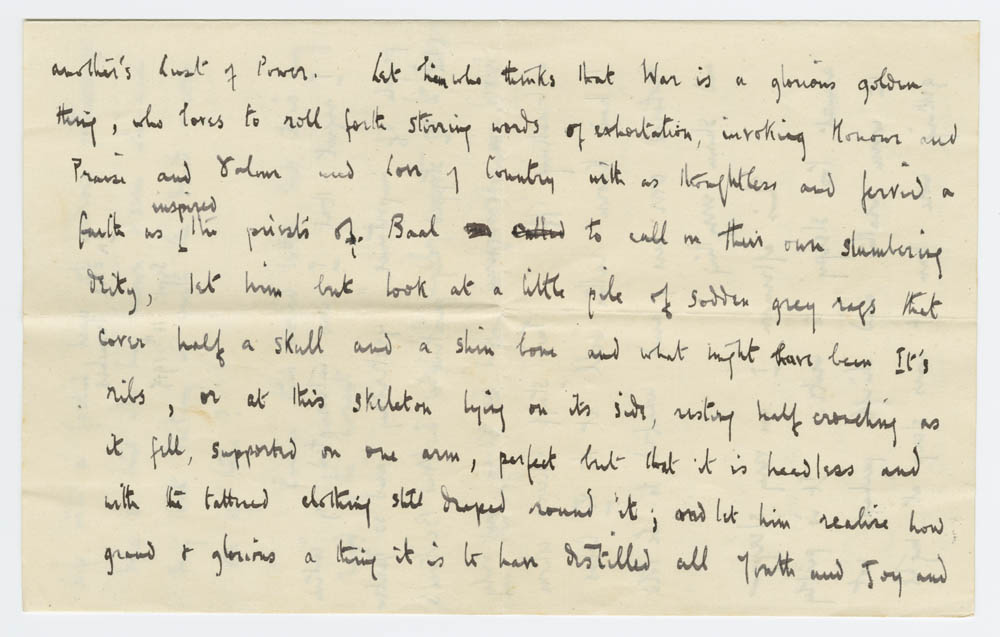 another's Lust of Power. Let him who thinks that War is a glorious golden
thing, who loves to roll forth stirring words of exhortation, invoking Honour and
Praise and Valour and Love of Country with as thoughtless and fervid a
faith as inspired the priests of Baal called to call on their own slumbering
deity, let him but look at a little pile of sodden grey rags that
cover half a skull and a shin bone and what might have been It's
ribs, or at this skeleton lying on its side, resting half crouching as
it fell, supported on one arm, perfect but that it is headless and
with the tattered clothing still draped round it; and let him realise how
grand & glorious a thing it is to have distilled all Youth and Joy and